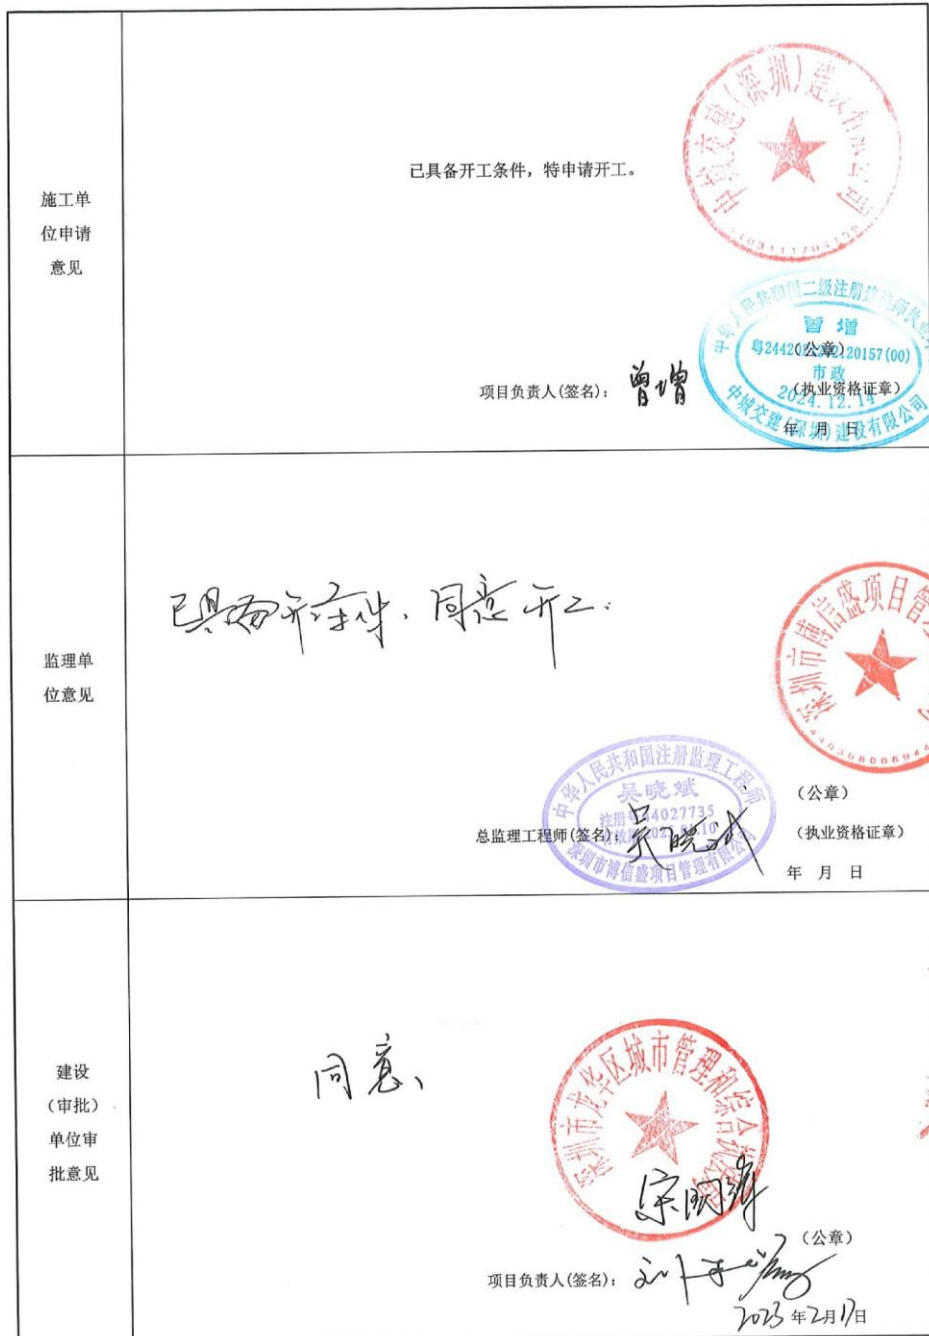 施工单
位申请
意见
已具备开工条件，特申请开工。
中城交建(深圳)建设有限公司
中华人民共和国二级注册建造师执业
曾增
(公章)
市政
2024.12.14
中城交建(深圳)建设有限公司
项目负责人(签名)：曾增
(执业资格证章)
年 月 日
监理单
位意见
已具备开工条件，同意开工.
深圳市博信盛项目管
中华人民共和国注册监理工程师
吴晓斌
深圳市博信盛项目管理有限公司
(公章)
总监理工程师(签名)：吴晓斌
(执业资格证章)
年 月 日
建设
(审批)
单位审
批意见
同意、
深圳市龙华区城市管理和综合执法局
(公章)
项目负责人(签名)：
2023年2月17日